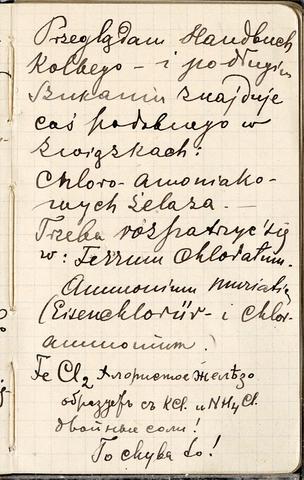 Przeglądam Handbuch
Kolbego – i po długim
szukaniu znajduję
coś podobnego w
związkach:
Chloro-amoniako-
wych żelaza. –
Trzeba rozpatrzyć się
w: Ferrum chloratum.
Ammonium muriatic
(Eisenchlorür – i Chlor-
ammonium.
FeCl2 Хлористое желѣзо
образуетъ съ KCl. и NH4Cl.
двойныя соли!
To chyba to!